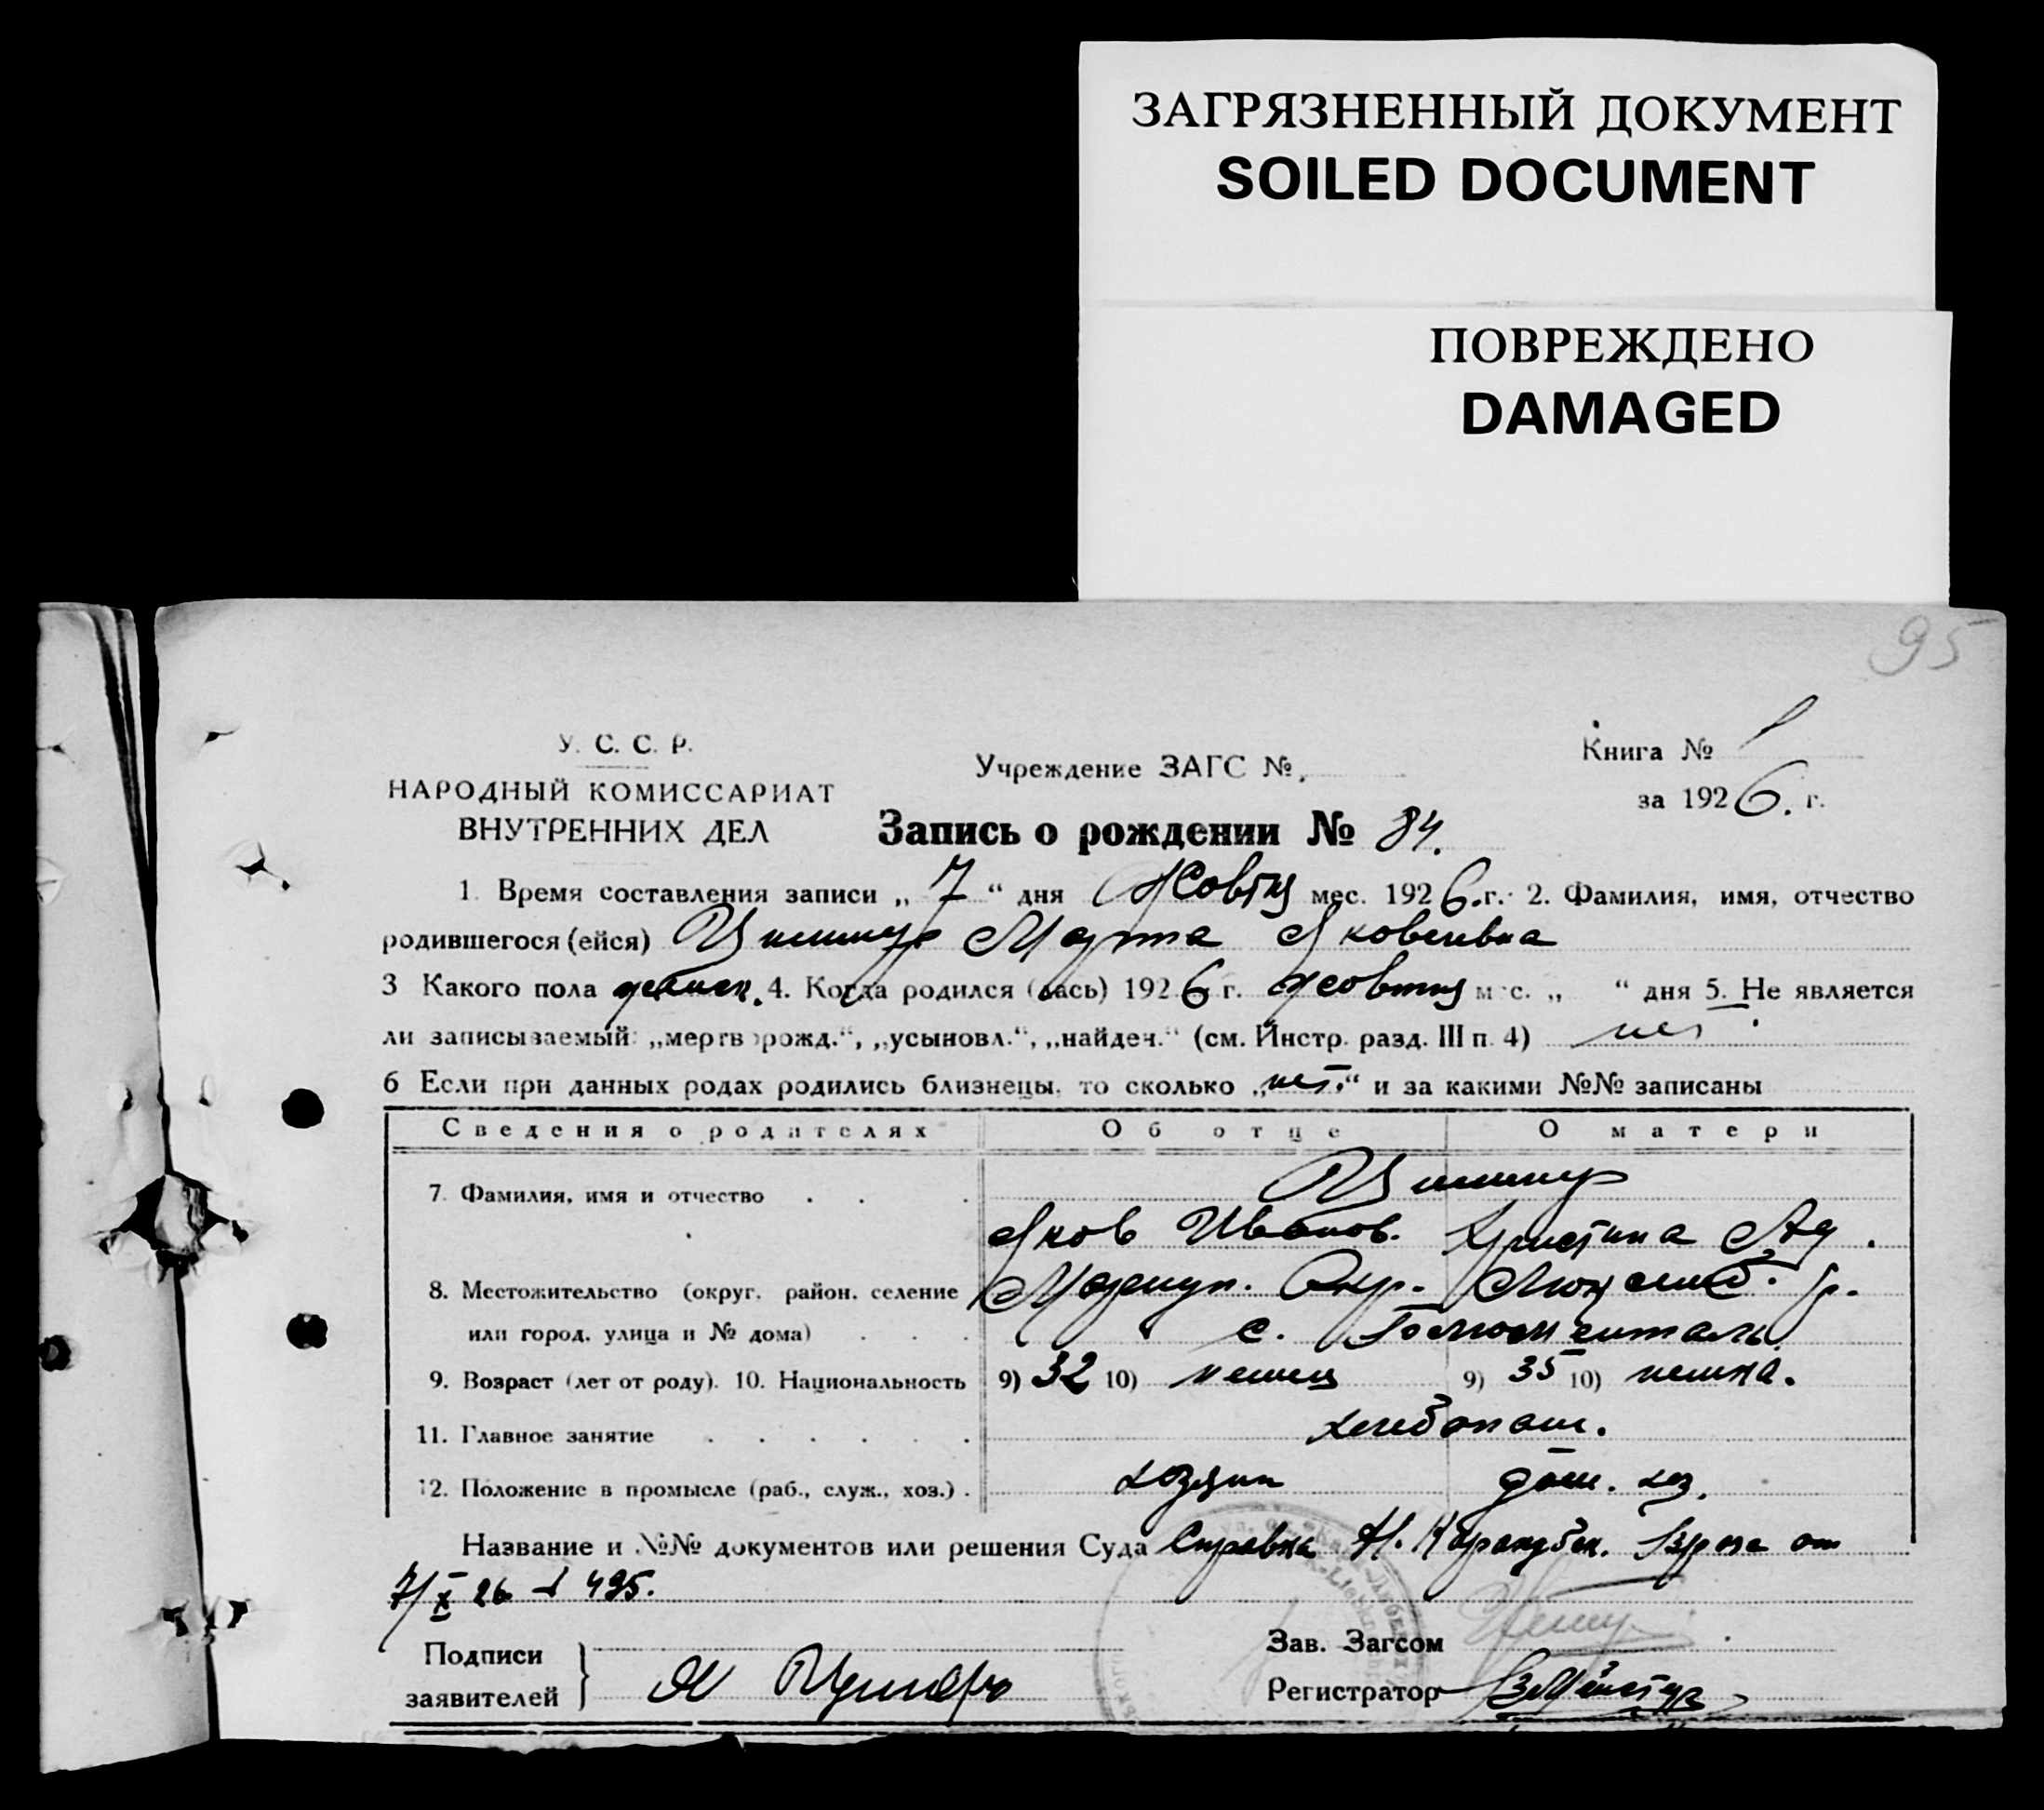 ЗАГРЯЗНЕННЫЙ ДОКУМЕНТ
SOILED DOCUMENT
ПОВРЕЖДЕНО
DAMAGED
95
У. С. С. Р.
НАРОДНЫЙ КОМИССАРИАТ
ВНУТРЕННИХ ДЕЛ
Учреждение ЗАГС №
Книга № 1
за 1926. г.
Запись о рождении № 84.
1. Время составления записи „ 7 “ дня Жовтня мес. 1926.г. 2. Фамилия, имя, отчество
родившегося (ейся) Циммер Марта Яковлевна
3 Какого пола 4. Когда родился (лась) 1926 г. жовтня мес. „ “ дня 5. Не является
ли записываемый: „мертворожд.“, „усыновл.“, „найден.“ (см. Инстр. разд. III п. 4) нет
6 Если при данных родах родились близнецы, то сколько „нет.“ и за какими №№ записаны
Сведения о родителях Об отце О матери
7. Фамилия, имя и отчество . . . Циммер
Яков Иванов. Христина Ад.
8. Местожительство (округ, район, селение Мариуп. Окр. Люксемб. р.
или город, улица и № дома) . . . с.
9. Возраст (лет от роду). 10. Национальность 9) 32 10) немец 9) 35 10) немка.
11. Главное занятие . . . . . . хлебопаш.
12. Положение в промысле (раб., служ., хоз.) . хозяин дом. хоз.
Название и №№ документов или решения Суда Справка от
7/X 26 495.
Подписи
заявителей } Я Циммер
Зав. Загсом
Регистратор